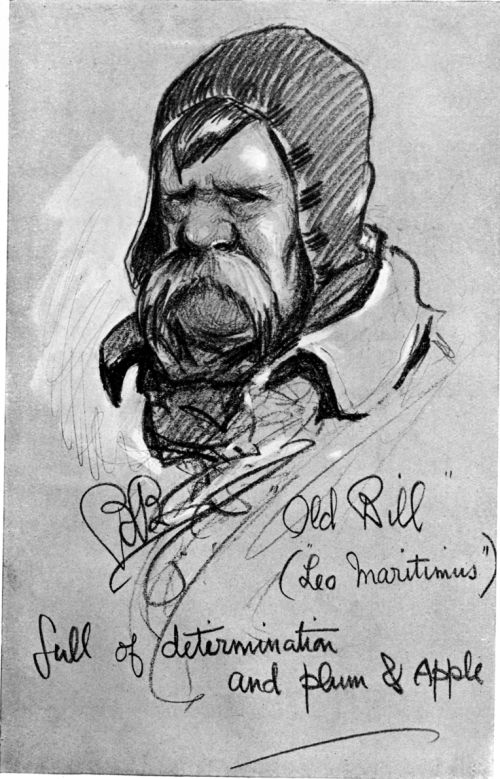 BB
"Old Bill"
("Leo Maritimus")
full of determination
and plum & Apple